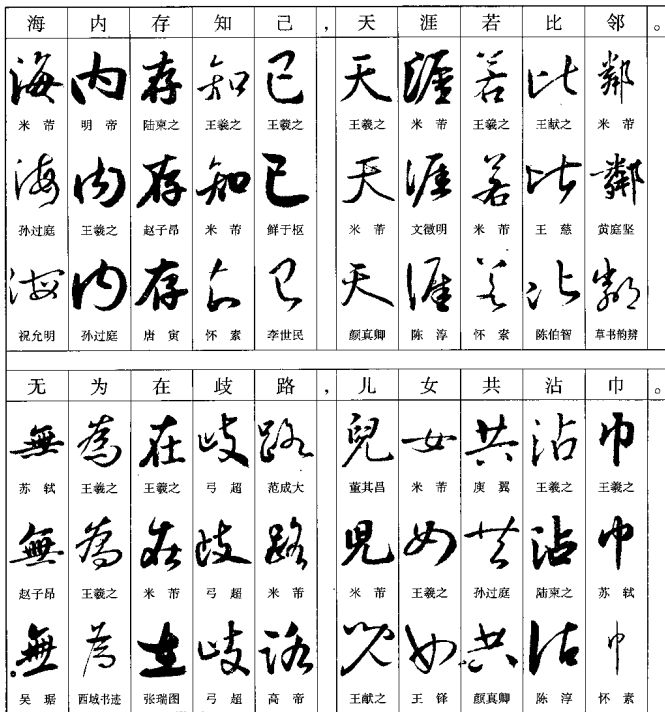 海 内 存 知 己 , 天 涯 若 比 邻 。
海 内 存 知 已 天 涯 若 比 鄰
米芾 明帝 陆柬之 王羲之 王羲之 王羲之 米芾 王羲之 王献之 米芾
海 内 存 知 已 天 涯 若 比 鄰
孙过庭 王羲之 赵子昂 米芾 鲜于枢 米芾 文徵明 米芾 王慈 黄庭坚
海 内 存 知 已 天 涯 若 比 鄰
祝允明 孙过庭 唐寅 怀素 李世民 颜真卿 陈淳 怀素 陈伯智 草书韵辨
无 为 在 歧 路 , 儿 女 共 沾 巾 。
無 為 在 歧 路 兒 女 共 沾 巾
苏轼 王羲之 王羲之 弓超 范成大 董其昌 米芾 庾翼 王羲之 王羲之
無 為 在 歧 路 兒 女 共 沾 巾
赵子昂 王羲之 米芾 弓超 米芾 米芾 王羲之 孙过庭 陆柬之 苏轼
無 為 在 歧 路 兒 女 共 沾 巾
吴琚 西域书迹 张瑞图 弓超 高帝 王献之 王铎 颜真卿 陈淳 怀素